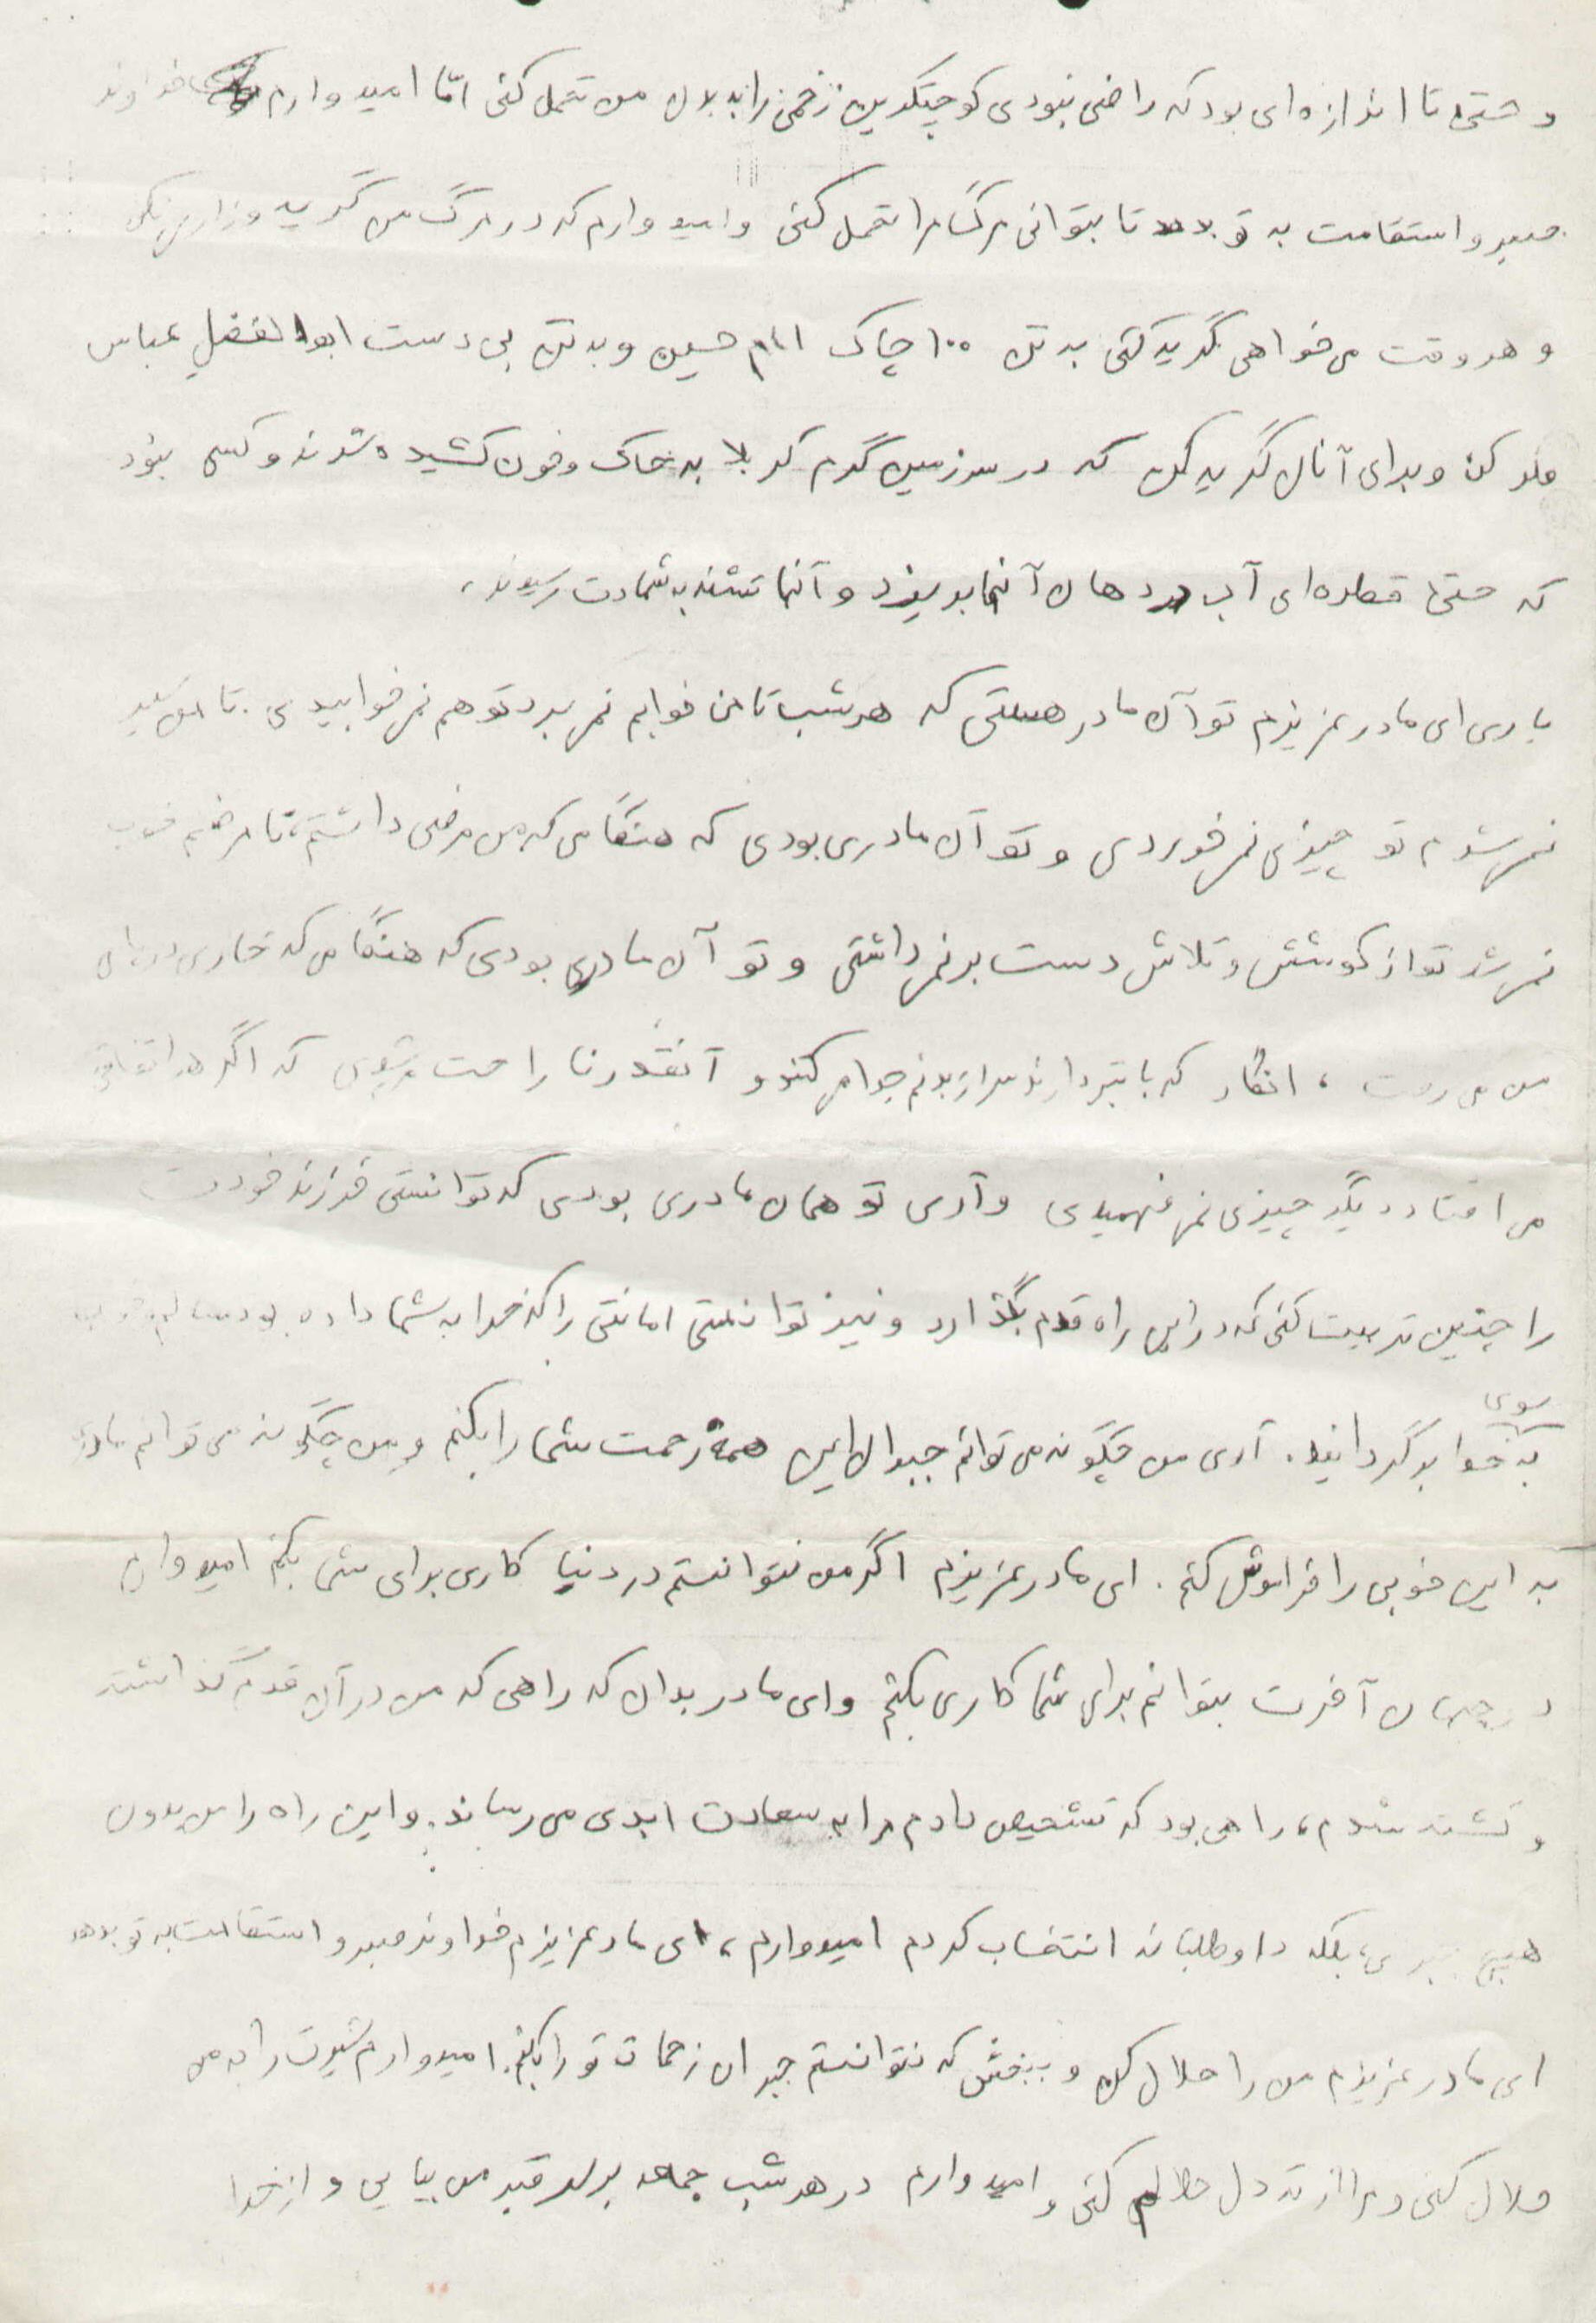 و حتی تا اندازه‌ای بود که راضی نبودی کوچیکترین زخمی را به بدن من تحمل کنی امّا امیدوارم خداوند
صبر و استقامت به تو بدهد تا بتوانی مرگ مرا تحمل کنی و امیدوارم که در مرگ من گریه و زاری نکنی
و هر وقت می‌خواهی گریه کنی به تن ۱۰۰ چاک امام حسین و به تن بی دست ابوالفضل عباس
فکر کن و برای آنان گریه کن که در سرزمین گرم کربلا به خاک و خون کشیده شدند و کسی نبود
که حتی قطره‌ای آب در دهان آنها بریزد و آنها تشنه به شهادت رسیدند،
باری ای مادر عزیزم تو آن مادر هستی که هر شب تا من خوابم نمی‌برد تو هم نمی‌خوابیدی. تا من سیر
نمی‌شدم تو چیزی نمی‌خوردی و تو آن مادری بودی که هنگامی که من مرضی داشتم، تا مرضم خوب
نمی‌شد تو از کوشش و تلاش دست برنمی‌داشتی و تو آن مادری بودی که هنگامی که خاری در پای
من می‌رفت، انگار که با تبر دارند سر از بدنم جدا می‌کنند و آنقدر ناراحت می‌شوی که اگر هر اتفاقی
می‌افتاد دیگر چیزی نمی‌فهمیدی و آری تو همان مادری بودی که توانستی فرزند خودت
را چنین تربیت کنی که در این راه قدم بگذارد و نیز توانستی امانتی را که خدا به شما داده بود
سوی
به خدا برگردانید. آری من چگونه می‌توانم جبران این همه زحمت شما را بکنم و من چگونه می‌توانم مادر
به این خوبی را فراموش کنم. ای مادر عزیزم اگر من نتوانستم در دنیا کاری برای شما بکنم امیدوارم
در جهان آخرت بتوانم برای شما کاری بکنم و ای مادر بدان که راهی که من در آن قدم گذاشته
و کشته شدم، راهی بود که تشخیص دادم مرا به سعادت ابدی می‌رساند. و این راه را من بدون
هیچ جبری، بلکه داوطلبانه انتخاب کردم امیدوارم، ای مادر عزیزم خداوند صبر و استقامت به تو بدهد
ای مادر عزیزم من را حلال کن و ببخش که نتوانستم جبران زحمات تو را بکنم. امیدوارم شیرت را به من
حلال کنی و مرا از ته دل حلالم کنی و امیدوارم در هر شب جمعه بر سر قبر من بیایی و از خدا